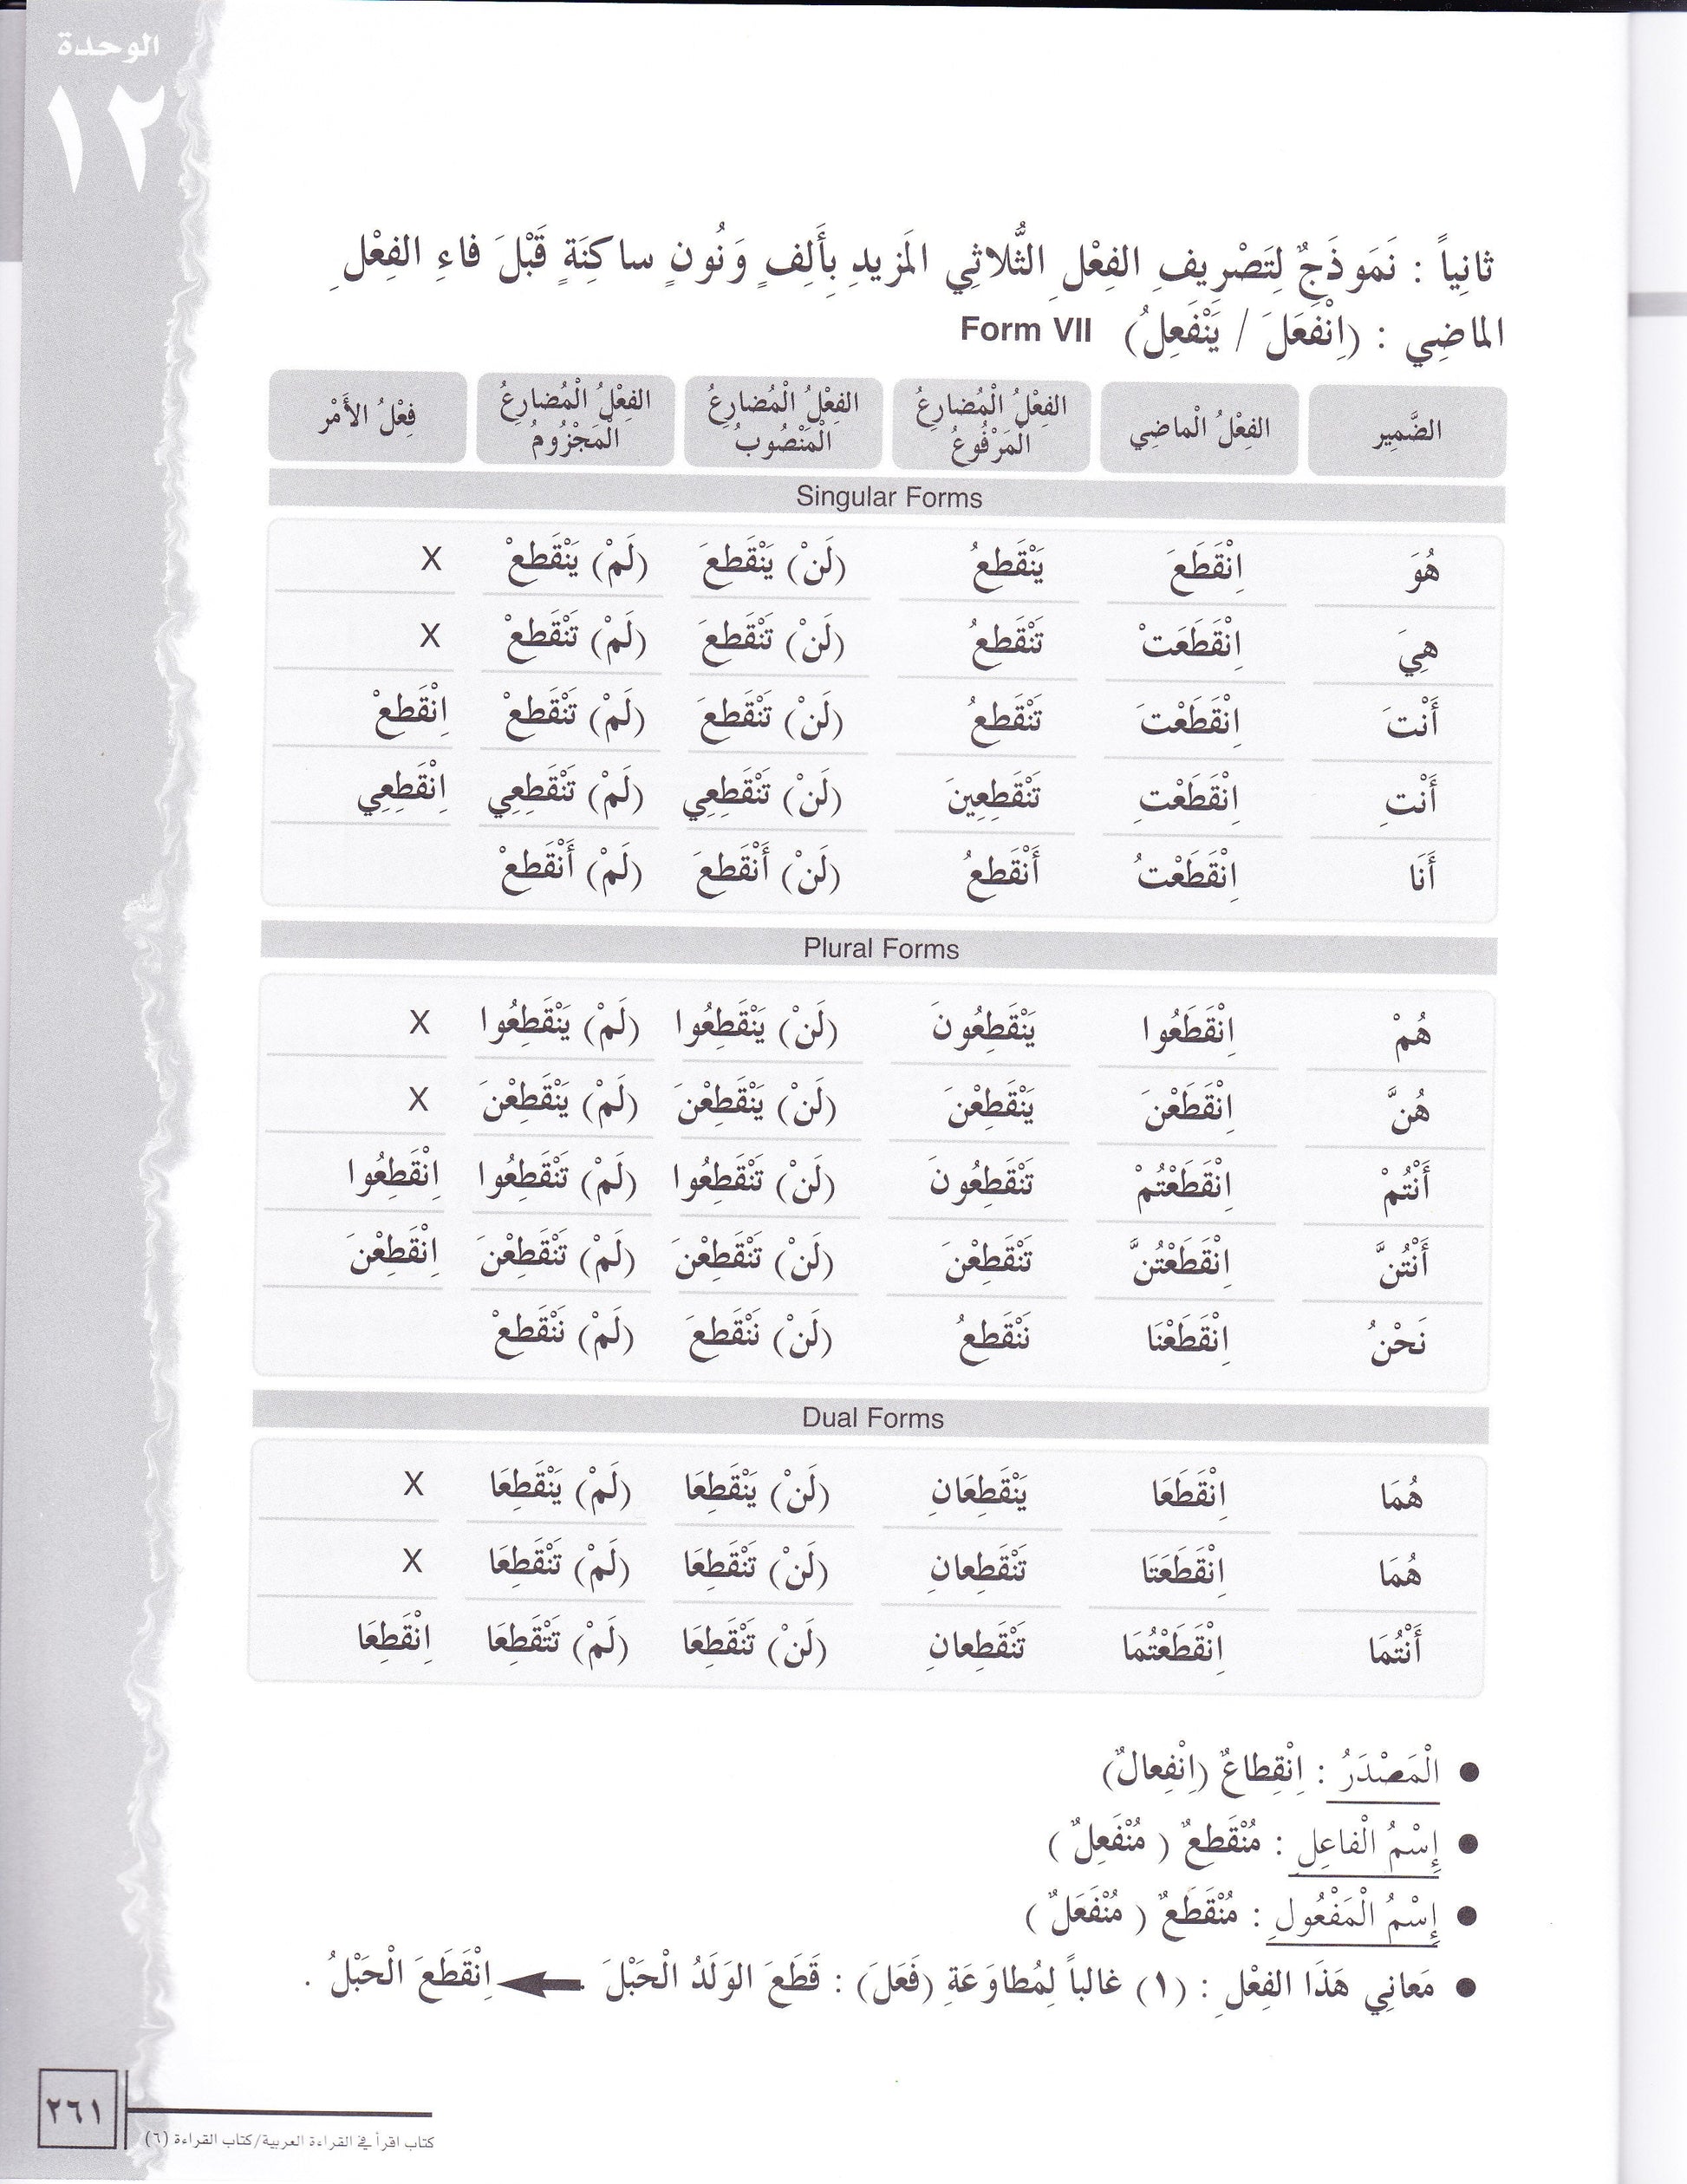 الوحدة
١٢
ثانِياً : نَمَوذَجٌ لِتَصْرِيفِ الفِعْلِ الثُّلاثِي المَزيدِ بِأَلِفٍ وَنُونٍ ساكِنَةٍ قَبْلَ فاءِ الفِعْلِ
الماضِي : (اِنْفَعَلَ / يَنْفَعِلُ) Form VII
الضَّمِير الفِعْلُ الْماضِي الفِعْلُ الْمُضارِعُ الْمَرْفُوعُ الفِعْلُ الْمُضارِعُ الْمَنْصُوبُ الفِعْلُ الْمُضارِعُ الْمَجْزُومُ فِعْلُ الأَمْر
Singular Forms
هُوَ اِنْقَطَعَ يَنْقَطِعُ (لَنْ) يَنْقَطِعَ (لَمْ) يَنْقَطِعْ X
هِيَ اِنْقَطَعَتْ تَنْقَطِعُ (لَنْ) تَنْقَطِعَ (لَمْ) تَنْقَطِعْ X
أَنْتَ اِنْقَطَعْتَ تَنْقَطِعُ (لَنْ) تَنْقَطِعَ (لَمْ) تَنْقَطِعْ اِنْقَطِعْ
أَنْتِ اِنْقَطَعْتِ تَنْقَطِعِينَ (لَنْ) تَنْقَطِعِي (لَمْ) تَنْقَطِعِي اِنْقَطِعِي
أَنَا اِنْقَطَعْتُ أَنْقَطِعُ (لَنْ) أَنْقَطِعَ (لَمْ) أَنْقَطِعْ
Plural Forms
هُمْ اِنْقَطَعُوا يَنْقَطِعُونَ (لَنْ) يَنْقَطِعُوا (لَمْ) يَنْقَطِعُوا X
هُنَّ اِنْقَطَعْنَ يَنْقَطِعْنَ (لَنْ) يَنْقَطِعْنَ (لَمْ) يَنْقَطِعْنَ X
أَنْتُمْ اِنْقَطَعْتُمْ تَنْقَطِعُونَ (لَنْ) تَنْقَطِعُوا (لَمْ) تَنْقَطِعُوا اِنْقَطِعُوا
أَنْتُنَّ اِنْقَطَعْتُنَّ تَنْقَطِعْنَ (لَنْ) تَنْقَطِعْنَ (لَمْ) تَنْقَطِعْنَ اِنْقَطِعْنَ
نَحْنُ اِنْقَطَعْنَا نَنْقَطِعُ (لَنْ) نَنْقَطِعَ (لَمْ) نَنْقَطِعْ
Dual Forms
هُمَا اِنْقَطَعَا يَنْقَطِعَانِ (لَنْ) يَنْقَطِعَا (لَمْ) يَنْقَطِعَا X
هُمَا اِنْقَطَعَتَا تَنْقَطِعانِ (لَنْ) تَنْقَطِعَا (لَمْ) تَنْقَطِعَا X
أَنْتُمَا اِنْقَطَعْتُمَا تَنْقَطِعانِ (لَنْ) تَنْقَطِعَا (لَمْ) تَتْقَطِعَا اِنْقَطِعَا
● الْمَصْدَرُ : اِنْقِطاعٌ (اِنْفِعالٌ)
● إِسْمُ الْفاعِلِ : مُنْقَطِعٌ ( مُنْفَعِلٌ )
● إِسْمُ الْمَفْعُولِ : مُنْقَطَعٌ ( مُنْفَعَلٌ )
● مَعانِي هَذَا الفِعْلِ : (١) غالباً لِمُطاوَعَةِ (فَعَلَ) : قَطَعَ الوَلَدُ الْحَبْلَ ← اِنْقَطَعَ الْحَبْلُ .
٢٦١
كتاب اقرأ في القراءة العربية/كتاب القراءة (٦)